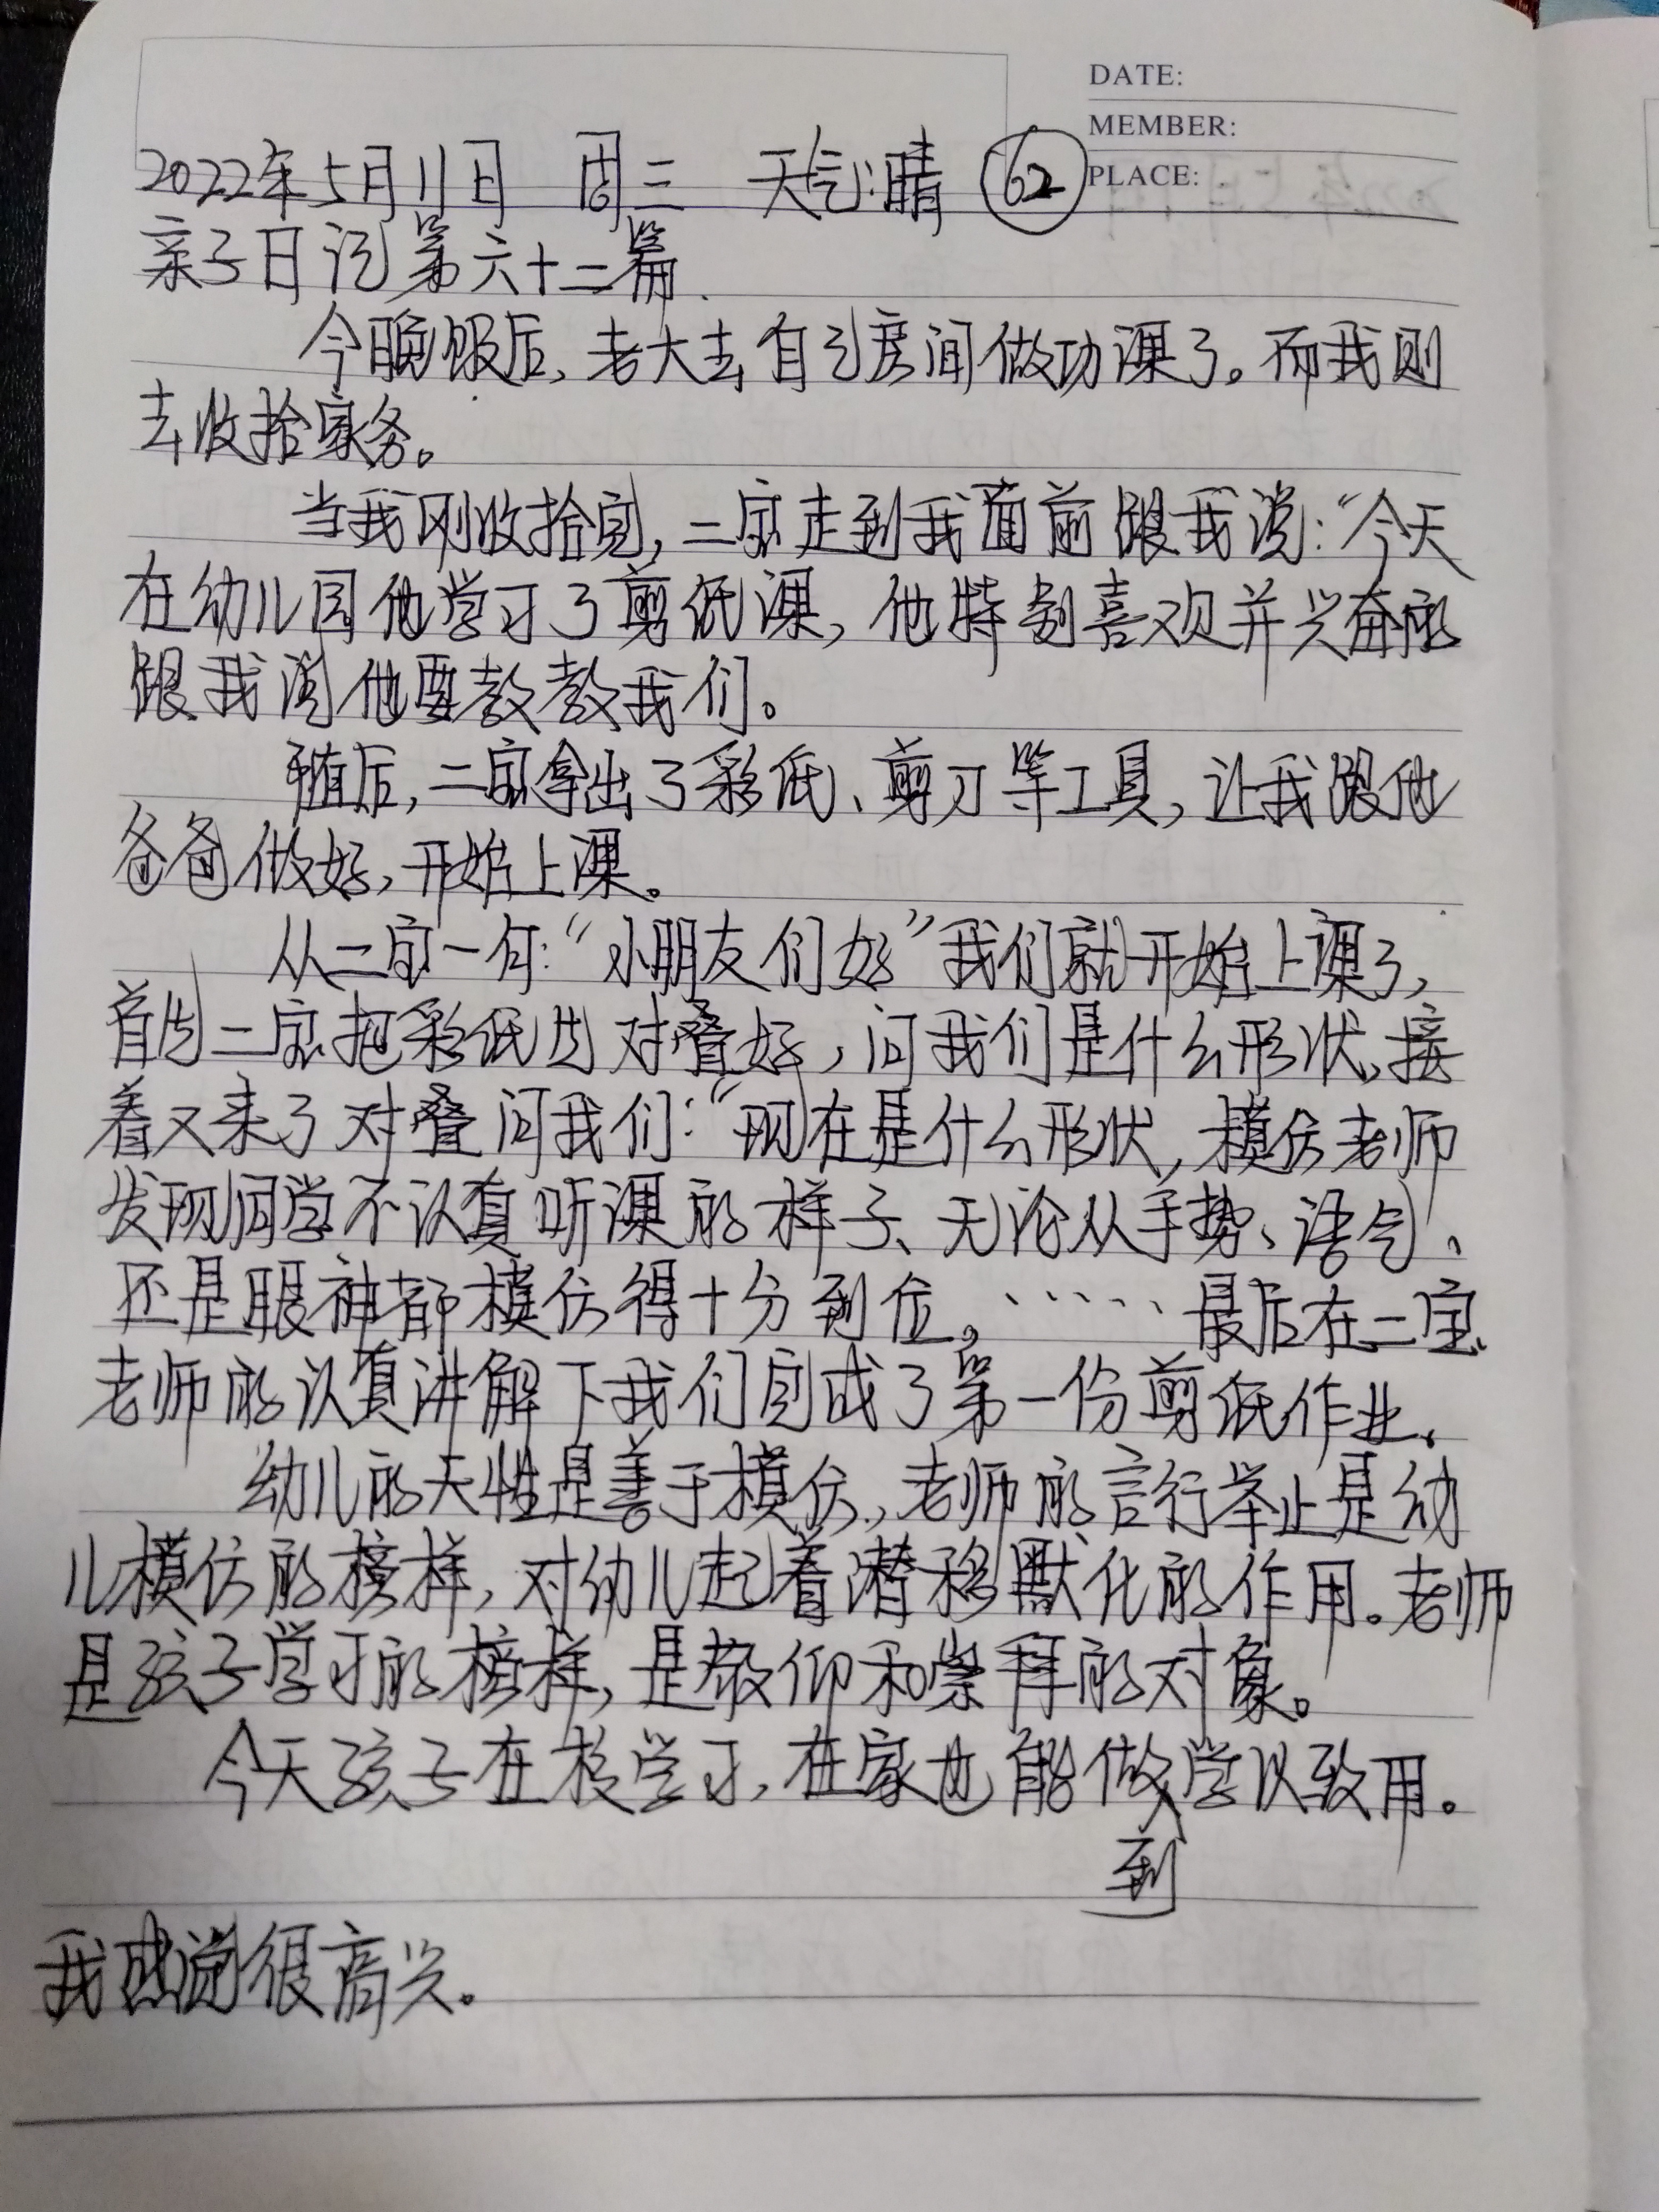 DATE:
MEMBER:
PLACE:
2022年5月11日 周三 天气:晴 62
亲子日记第六十二篇.
今晚饭后,老大去自己房间做功课了。而我则
去收拾家务。
当我刚收拾完,二宝走到我面前跟我说:“今天
在幼儿园他学习了剪纸课,他特别喜欢并兴奋的
跟我说他要教教我们。
随后,二宝拿出了彩纸、剪刀等工具,让我跟他
爸爸做好,开始上课。
从二宝一句:“小朋友们好”我们就开始上课了,
首先二宝把彩纸先对叠好,问我们是什么形状,接
着又来了对叠问我们:“现在是什么形状,模仿老师
发现同学不认真听课的样子、无论从手势、语气、
还是眼神都模仿得十分到位。……最后在二宝
老师的认真讲解下我们完成了第一份剪纸作业。
幼儿的天性是善于模仿,老师的言行举止是幼
儿模仿的榜样,对幼儿起着潜移默化的作用。老师
是孩子学习的榜样,是敬仰和崇拜的对象。
今天孩子在校学习,在家也能做到学以致用。
我感觉很高兴。